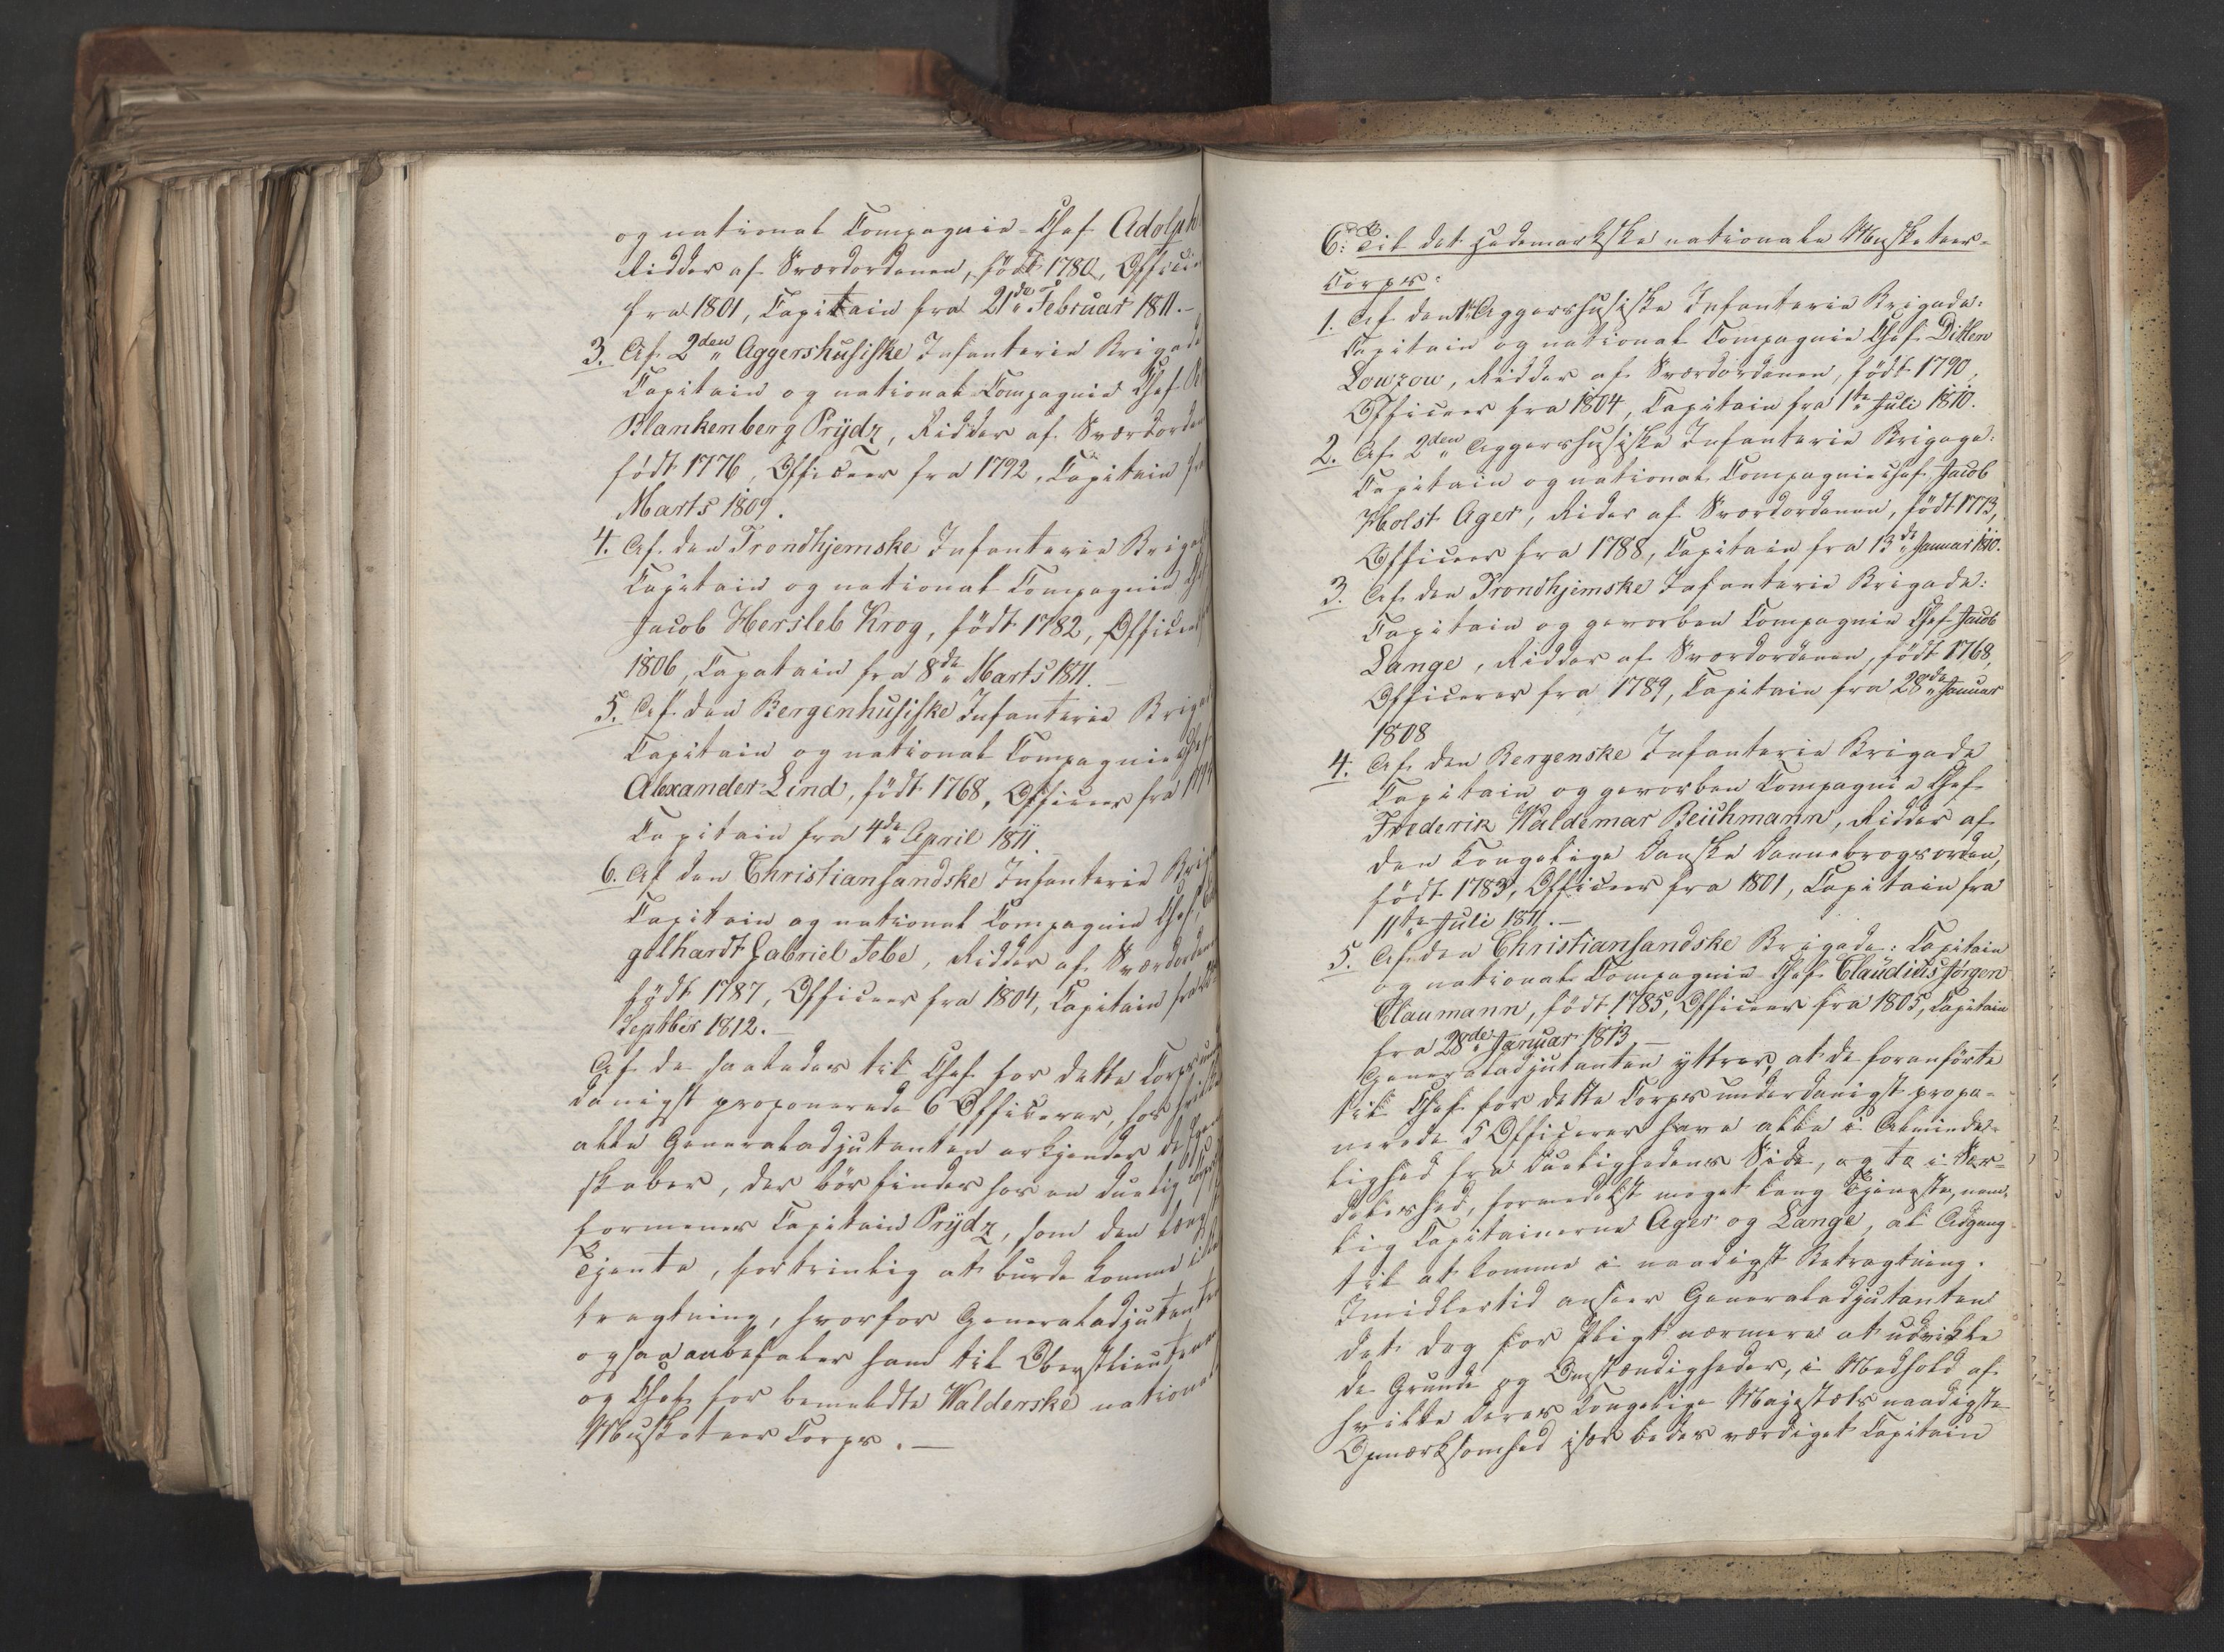 og national Compagnie-Chef Adolph
Ridder af Sværdordenen, född 1780, Officier
fra 1801, Capitain fra 21de Februar 1811.-
3. Af 2den Aggershusiske Infanterie Brigade
Capitain og national Compagnie Chef
Blankenberg Prydz, Ridder af Sværdorden
födt 1776, Officeer fra 1792, Capitain fra
Marts 1809.
4. Af den Trondhjemske Infanterie Brigade
Capitain og national Compagnie Chef
Jacob Hersleb Krog, födt 1782, Officeer
1806, Capatain fra 8de Marts 1811.-
5. Af den Bergenhusiske Infanterie Brigade
Capitain og national Compagnie Chef
Alexander Lind, födt 1768, Officeer fra
Capitain fra 4de April 1811.
6. Af den Christiansandske Infanterie
Capitain og national Compagnie Chef
gelhardt Gabriel Tebe, Ridder af Sværdorden
födt 1787, Officeer fra 1804, Capitain fra
Septber 1812.-
Af de saaledes til Chef for dette Corps
danigst proponerede 6 Officerer, hos
alle Generaladjutanten erkjender de
skaber, der bör findes hos en duelig
formener Capitain Prydz, som den længst
Tjente, fortrinlig at burde komme i
tragtning, hvorfor Generaladjutanten
ogsaa anbefaler ham til Oberstlieutenant
og Chef for bemeldte Walderske national
Musketeer Corps.-
6: Til det Hedemarkske nationale Musketeer-
Corps:
1. Af den 1ste Aggershusiske Infanterie Brigade:
Capitain og national Compagnie Chef Ditlew
Lowzow, Ridder af Sværdordenen, födt 1790,
Officeer fra 1804, Capitain fra 1te Juli 1810.
2. Af 2den Aggershusiske Infanterie Brigage:
Capitain og national Compagniechef Jacob
Holst Ager, Rider af Sværdordenen, födt 1773,
Officeer fra 1788, Capitain fra 13de Januar 1810.
3. Af den Trondhjemske Infanterie Brigade:
Capitain og gevorben Compagnie Chef Jacob
Lange, Ridder af Sværdordenen, födt 1768,
Officerer fra 1789, Capitain fra 28de Januar
1808
4. Af den Bergenske Infanterie Brigade
Capitain og gevorben Compagnie Chef
Frederik Waldemar Beichmann, Ridder af
den Kongelige Danske Dannebrogsorden,
födt 1783, Officeer fra 1801, Capitain fra
11te Juli 1811.-
5. Af den Christiansandske Brigade: Capitain
og national Compagnie Chef Claudius Jörgen
Claumann, födt 1785, Officeer fra 1805, Capitain
fra 28de Januar 1813.-
Generaladjutanten yttrer, at de foranförte
til Chef for dette Corps underdanigst propo-
nerede 5 Officerer have alle i Alminde-
lighed fra Duelighedens Side, og to i Sær-
deleshed, formedelst meget lang Tjeneste, nem-
lig Capitainerne Ager og Lange, al Adgang
til at komme i naadigst Betragtning.
Imidlertid anseer Generaladjutanten
det dog for Pligt nærmere at udvikle
de Grunde og Omstændigheder, i Medhold af
hvilke Deres Kongelige Majestæts naadigste
Opmærksomhed især bedes værdiget Capitain